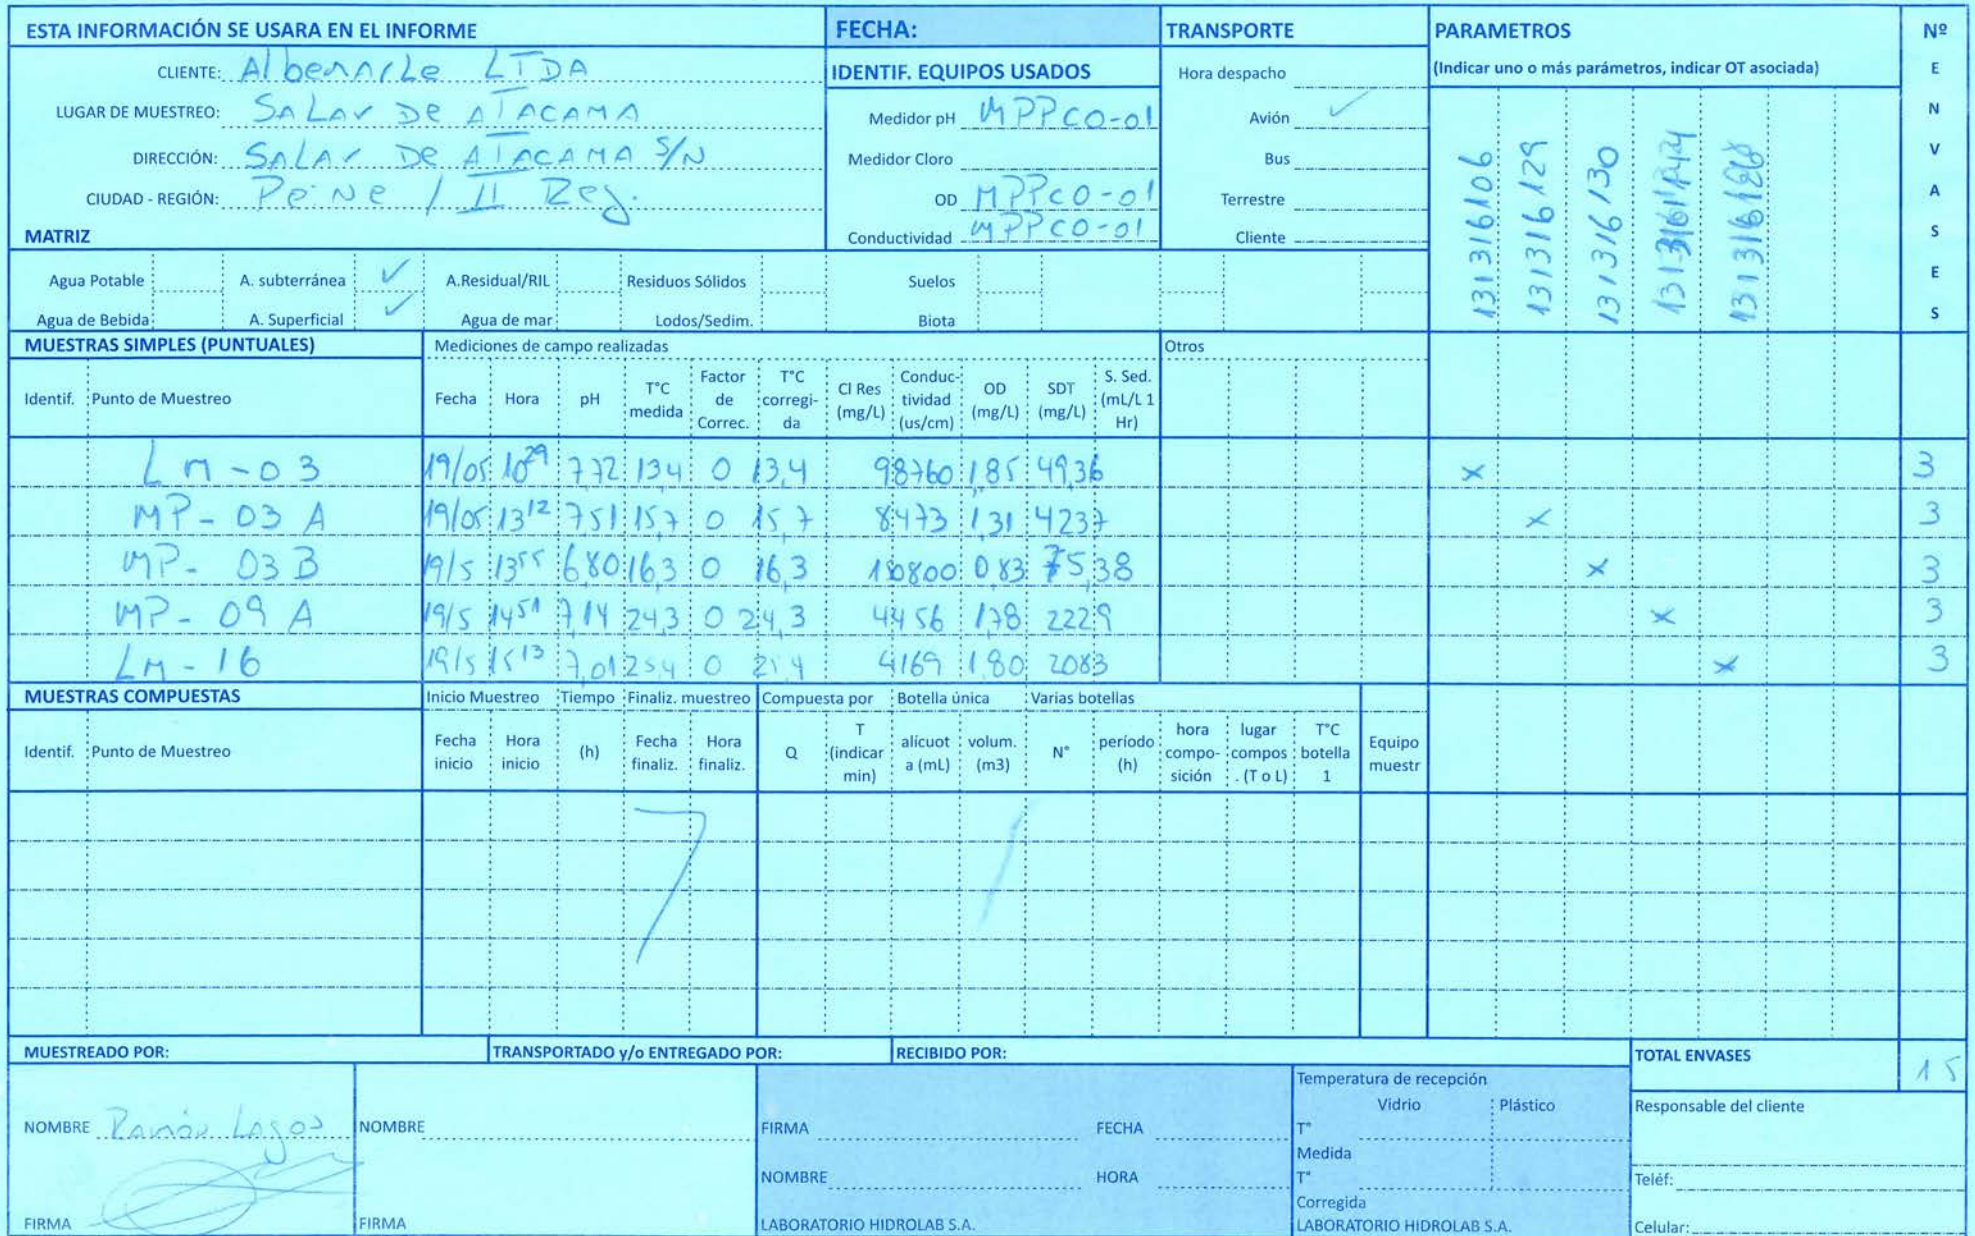 ESTA INFORMACIÓN SE USARA EN EL INFORME
CLIENTE: Albemarle LTDA
LUGAR DE MUESTREO: SALAr De ATACAMA
DIRECCIÓN: SALAr De ATACAMA S/N
CIUDAD - REGIÓN: PeiNe / II Reg.
MATRIZ
FECHA:
IDENTIF. EQUIPOS USADOS
Medidor pH MPPCO-01
Medidor Cloro
OD MPPCO-01
Conductividad MPPCO-01
TRANSPORTE
Hora despacho
Avión ✓
Bus
Terrestre
Cliente
PARAMETROS
(Indicar uno o más parámetros, indicar OT asociada)
131316106
131316129
131316130
Nº
E
N
V
A
S
E
S
Agua Potable A. subterránea ✓ A.Residual/RIL Residuos Sólidos Suelos
Agua de Bebida A. Superficial ✓ Agua de mar Lodos/Sedim. Biota
MUESTRAS SIMPLES (PUNTUALES) Mediciones de campo realizadas Otros
Identif. Punto de Muestreo Fecha Hora pH T°C medida Factor de Correc. T°C corregi-da Cl Res (mg/L) Conduc-tividad (us/cm) OD (mg/L) SDT (mg/L) S. Sed. (mL/L 1 Hr)
LM-03 19/05 10 29 7,72 13,4 0 13,4 98760 1,85 49,36 x 3
MP-03 A 19/05 13 12 7,51 15,7 0 15,7 8473 1,31 4237 x 3
MP-03 B 19/5 13 55 6,80 16,3 0 16,3 0,83 75,38 x 3
MP-09 A 19/5 14 51 7,14 24,3 0 24,3 4456 1,78 2229 x 3
LM-16 19/5 15 13 7,01 25,4 0 25,4 4169 1,80 2083 x 3
MUESTRAS COMPUESTAS Inicio Muestreo Tiempo Finaliz. muestreo Compuesta por Botella única Varias botellas
Identif. Punto de Muestreo Fecha inicio Hora inicio (h) Fecha finaliz. Hora finaliz. Q T (indicar min) alicuot a (mL) volum. (m3) N° período (h) hora compo-sición lugar compos . (T o L) T°C botella 1 Equipo muestr
MUESTREADO POR: TRANSPORTADO y/o ENTREGADO POR: RECIBIDO POR: TOTAL ENVASES 15
NOMBRE Ramón Lagos
FIRMA
NOMBRE
FIRMA
FIRMA FECHA
NOMBRE HORA
LABORATORIO HIDROLAB S.A.
Temperatura de recepción
Vidrio Plástico
T°
Medida
T°
Corregida
LABORATORIO HIDROLAB S.A.
Responsable del cliente
Teléf:
Celular: